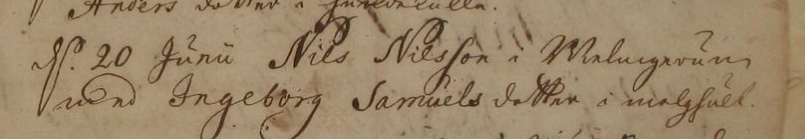 Anders dotter i
D. 20 Junii Nils Nilsson i Welingerum
med Ingeborg Samuels dotter i